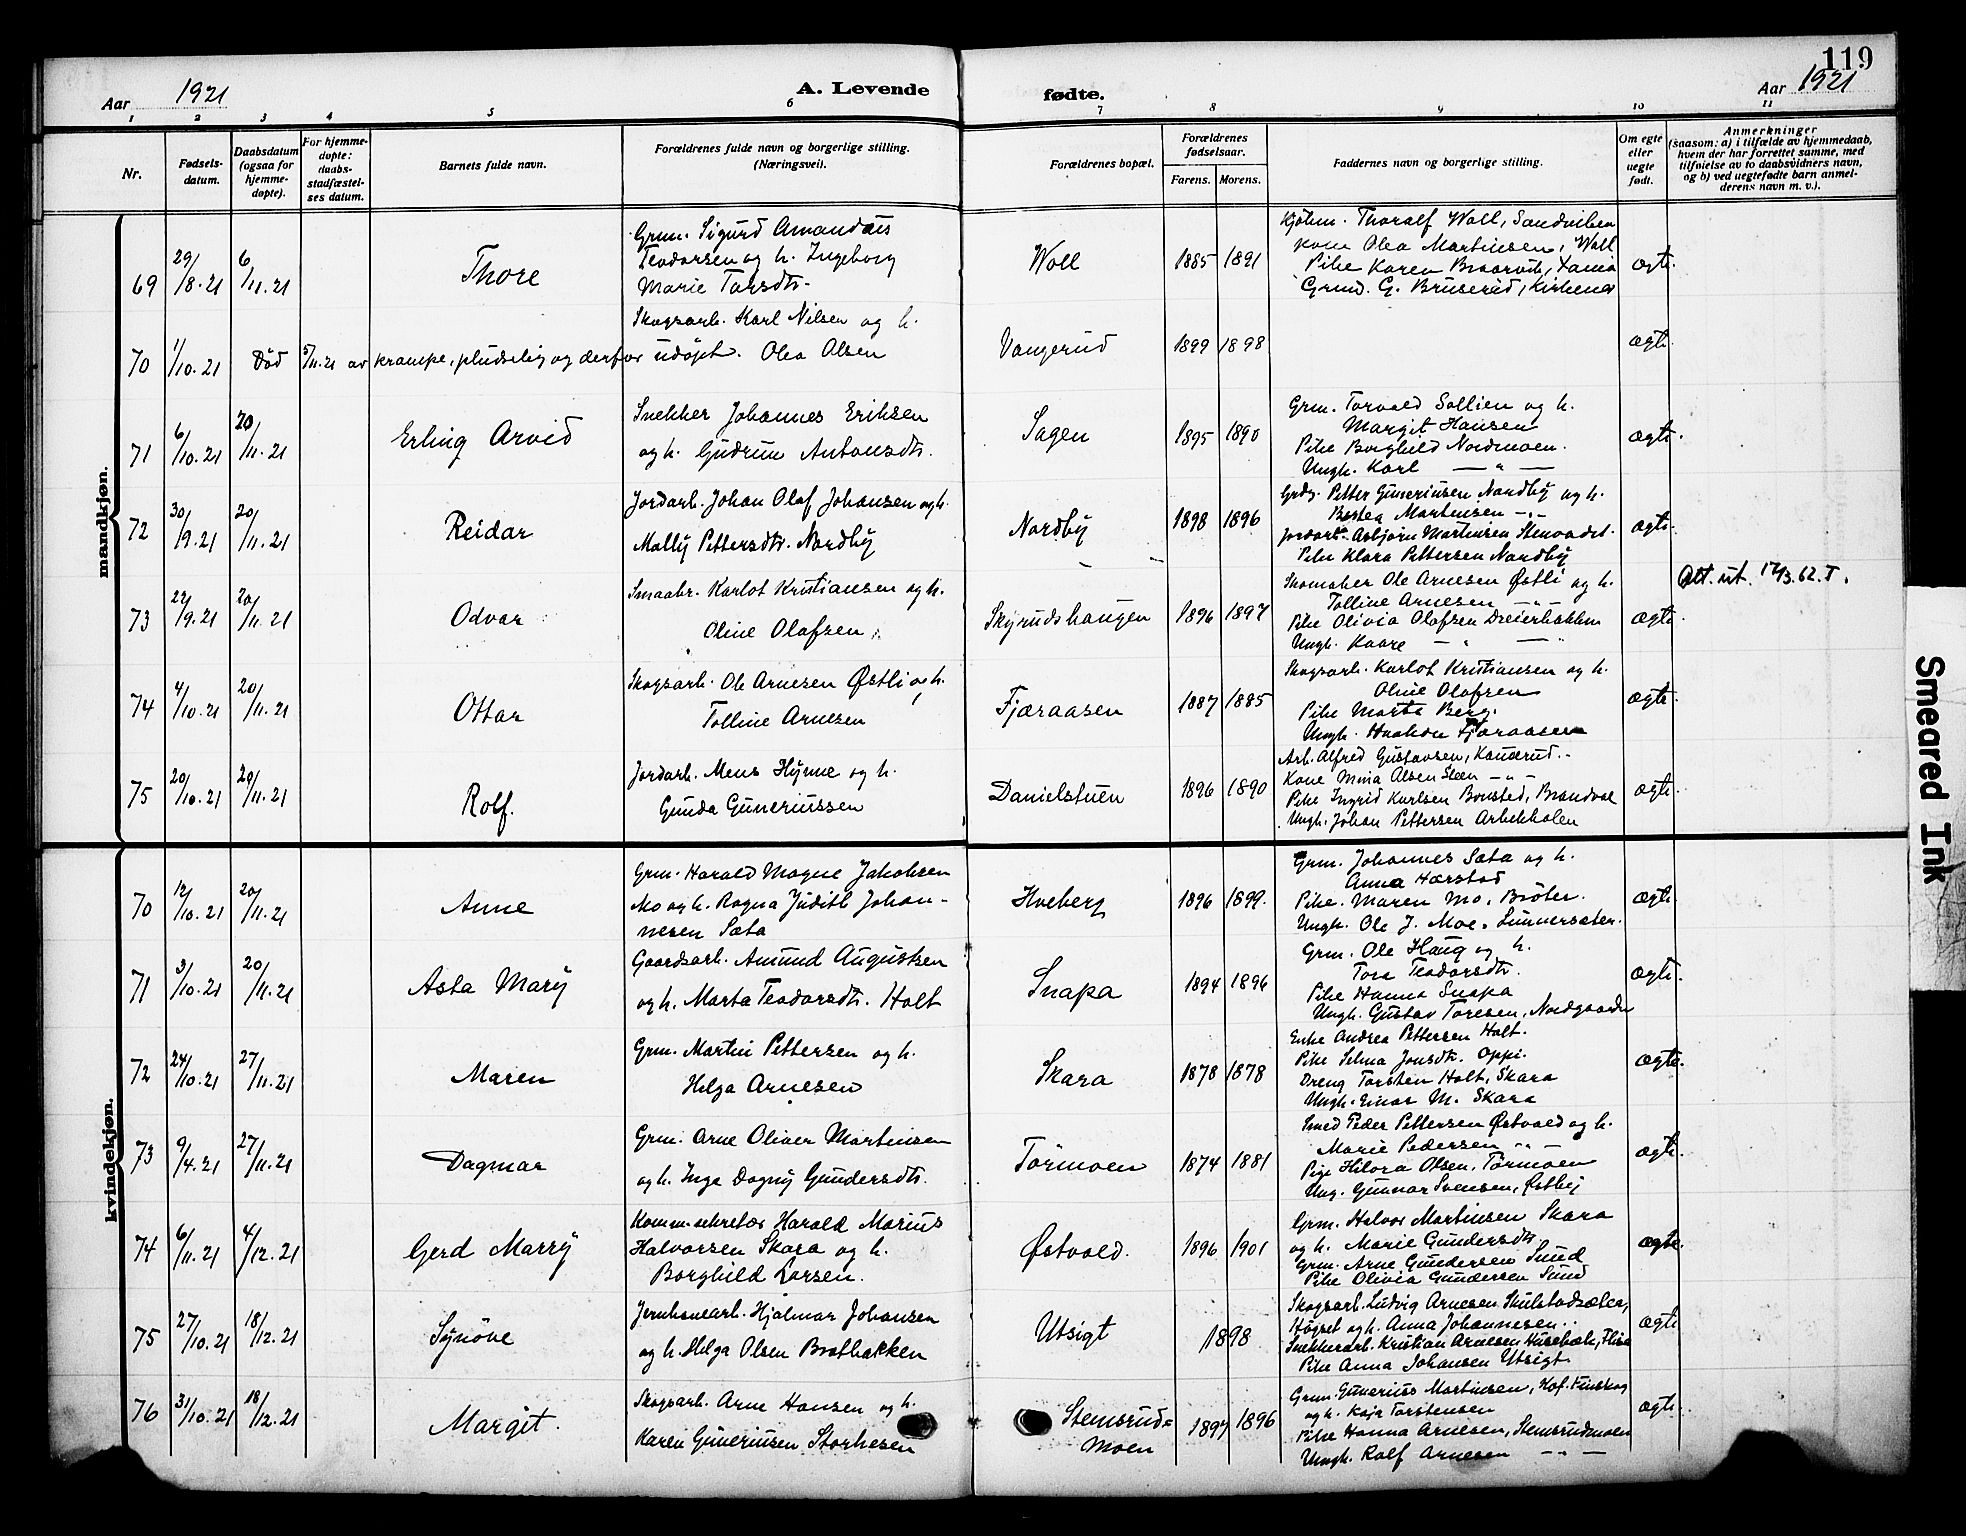 119
Aar 1921 A. Levende fødte. Aar 1921
1 2 3 4 5 6 7 8 9 10 11
Nr.
Fødsels-
datum.
Daabsdatum
(ogsaa for
hjemme-
døpte).
For hjemme-
døpte:
daabs-
stadfæstel-
ses datum.
Barnets fulde navn.
Forældrenes fulde navn og borgerlige stilling.
(Næringsvei).
Forældrenes bopæl.
Forældrenes
fødselsaar.
Farens. Morens.
Faddernes navn og borgerlige stilling.
Om egte
eller
uegte
født.
Anmerkninger
(saasom: a) i tilfælde av hjemmedaab,
hvem der har forrettet samme, med
tilføielse av to daabsvidners navn,
og b) ved uegtefødte barn anmel-
derens navn m. v.).
mandkjøn.
69 29/8.21 6/11.21 Thore
Grm. Sigurd Amandus
Teodorsen og h. Ingeborg
Marie Torsdtr.
Woll 1885 1891
Kjøbm. Thoralf Woll, Sandviken
Kone Olea Martinsen, Woll
Pike Karen Braarvik, Xania
Grmd. G. Bruserud, Kirkenær
ægte.
70 1/10.21 Død 5/11.21 av krampe, pludselig og derfor udøpt.
Skogsarb. Karl Nilsen og h.
Olea Olsen
Vangerud 1899 1898 ægte.
71 6/10.21 20/11.21 Erling Arvid
Snekker Johannes Eriksen
og h. Gudrun Antonsdtr.
Sagen 1895 1890
Grm. Torvald Sollien og h.
Margit Hansen
Pike Borghild Nordmoen.
Ungk. Karl — " —
ægte.
72 30/9.21 20/11.21 Reidar
Jordarb. Johan Olaf Johansen og h.
Mally Pettersdtr. Nordby
Nordby 1898 1896
Grdg. Petter Guneriusen Nordby og h.
Bertea Martinsen — " —
Jordarb. Asbjørn Martinsen Stenvadet.
Pike Klara Pettersen Nordby
ægte.
73 22/9.21 20/11.21 Odvar
Smaabr. Karlot Kristiansen og h.
Oline Olafsen.
Skyrudshaugen 1896 1897
Skomaker Ole Arnesen Østli og h.
Tolline Arnesen — " —
Pike Olivia Olafsen Dreierbakken
Ungk. Kaare — " —
ægte.
Att. ut. 17/3.62. T.
74 4/10.21 20/11.21 Ottar
Skogsarb. Ole Arnesen Østli og h.
Tolline Arnesen
Fjæraasen 1887 1885
Skogsarb. Karlot Kristiansen og h.
Oline Olafsen
Pike Marta Berg.
Ungk. Haakon Fjæraasen
ægte.
75 20/10.21 20/11.21 Rolf.
Jordarb. Mens Hynne og h.
Gunda Guneriussen
Danielstuen 1896 1890
Arb. Alfred Gustavsen, Kauserud.
Kone Mina Olsen Steen — " —
Pike Ingrid Karlsen Bonsted, Brandval
Ungk. Johan Pettersen Arbekkolen
ægte.
kvindekjøn.
70 12/10.21 20/11.21 Anne
Grm. Harald Magne Jakobsen
Mo og h. Ragna Judith Johan-
nesen Sæta
Hveberg 1896 1899.
Grm. Johannes Sæta og h.
Anna Hærstad
Pike. Maren Mo, Bröter.
Ungk. Ole J. Moe. Sunnersæter.
ægte.
71 3/10.21 20/11.21 Asta Mary
Gaardsarb. Amund Augustsen
og h. Marta Teodorsdtr. Holt
Snapa 1894 1896
Grm. Ole Haug og h.
Tora Teodorsdtr.
Pike Hanna Snapa
Ungk. Gustav Toresen, Nordgaarden
ægte.
72 24/10.21 27/11.21 Maren
Grm. Martin Pettersen og h.
Helga Arnesen
Skara 1878 1878
Enke Andrea Pettersen Holt.
Pike Selma Jonsdtr. Oppi.
Dreng Torsten Holt, Skara
Ungk. Einar M. Skara
ægte.
73 9/4.21 27/11.21 Dagmar
Grm. Arne Oliver Martinsen
og h. Inga Dagny Gundersdtr.
Törmoen 1874 1881
Smed Peder Pettersen Østvold og h.
Marie Pedersen — " —
Pige Hilora Olsen, Törmoen
Ung. Gunnar Svensen, Østby
ægte.
74 6/11.21 4/12.21 Gerd Marry
Komm.sekretær Harald Marius
Halvorsen Skara og h.
Borghild Larsen.
Østvold. 1896 1901
Grm. Halvor Martinsen Skara
og h. Marie Gundersdtr.
Grm. Arne Gundersen Sund
Pike Olivia Gundersen Sund
ægte.
75 27/10.21 18/12.21 Synöve
Jernbanearb. Hjalmar Johansen
og h. Helga Olsen Bratbakken
Utsigt 1898
Skogsarb. Ludvig Arnesen Skulstadsæter,
Høgset og h. Anna Johannesen
Snekkerarb. Kristian Arnesen Husebæk, Flisa
Pike Anna Johansen Utsigt
ægte.
76 31/10.21 18/12.21 Margit.
Skogsarb. Arne Hansen og h.
Karen Guneriusen Storhesen
Stemsrud=
moen 1897 1896
Grm. Gunerius Martinsen, Hof. Finskog
og h. Kaja Torstensen
Pike Hanna Arnesen, Stemsrudmoen
Ungk. Rolf Arnesen — " —
ægte.
Smeared Ink